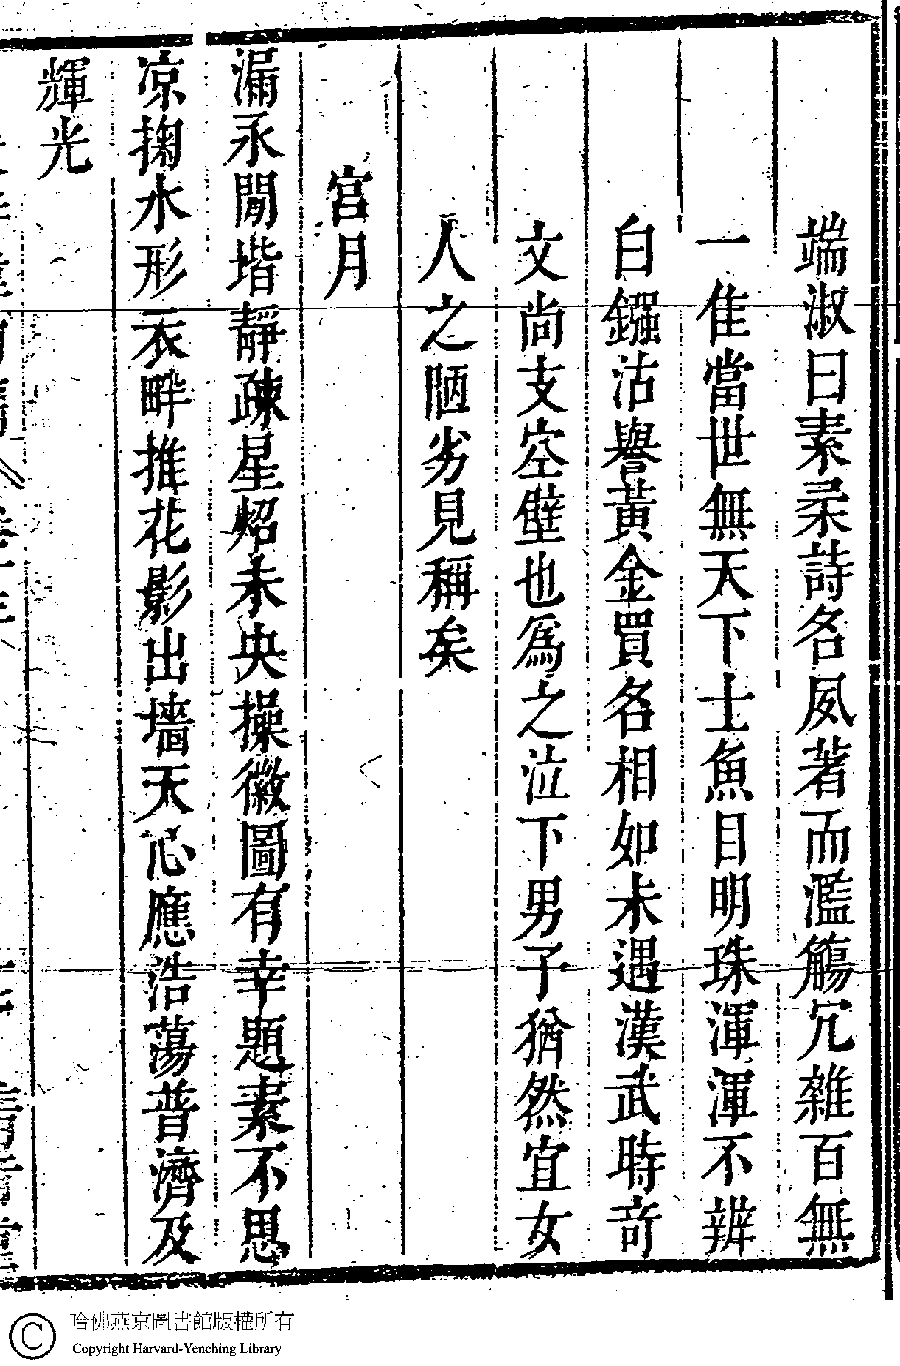 端淑曰素君詩名夙著而濫觴冗雜百無
一佳當世無天下士魚目明珠渾渾不辨
白鏹沽譽黃金買名相如未遇漢武時奇
文尚支空壁也為之泣下男子猶然宜女
人之陋劣見稱矣
宮月
漏永閒堦靜疎星炤未央操徽圖有幸題素不思
凉掬水形衣畔推花影出墻天心應浩蕩普濟及
輝光
哈佛燕京圖書館版權所有
Copyright Harvard-Yenching Library